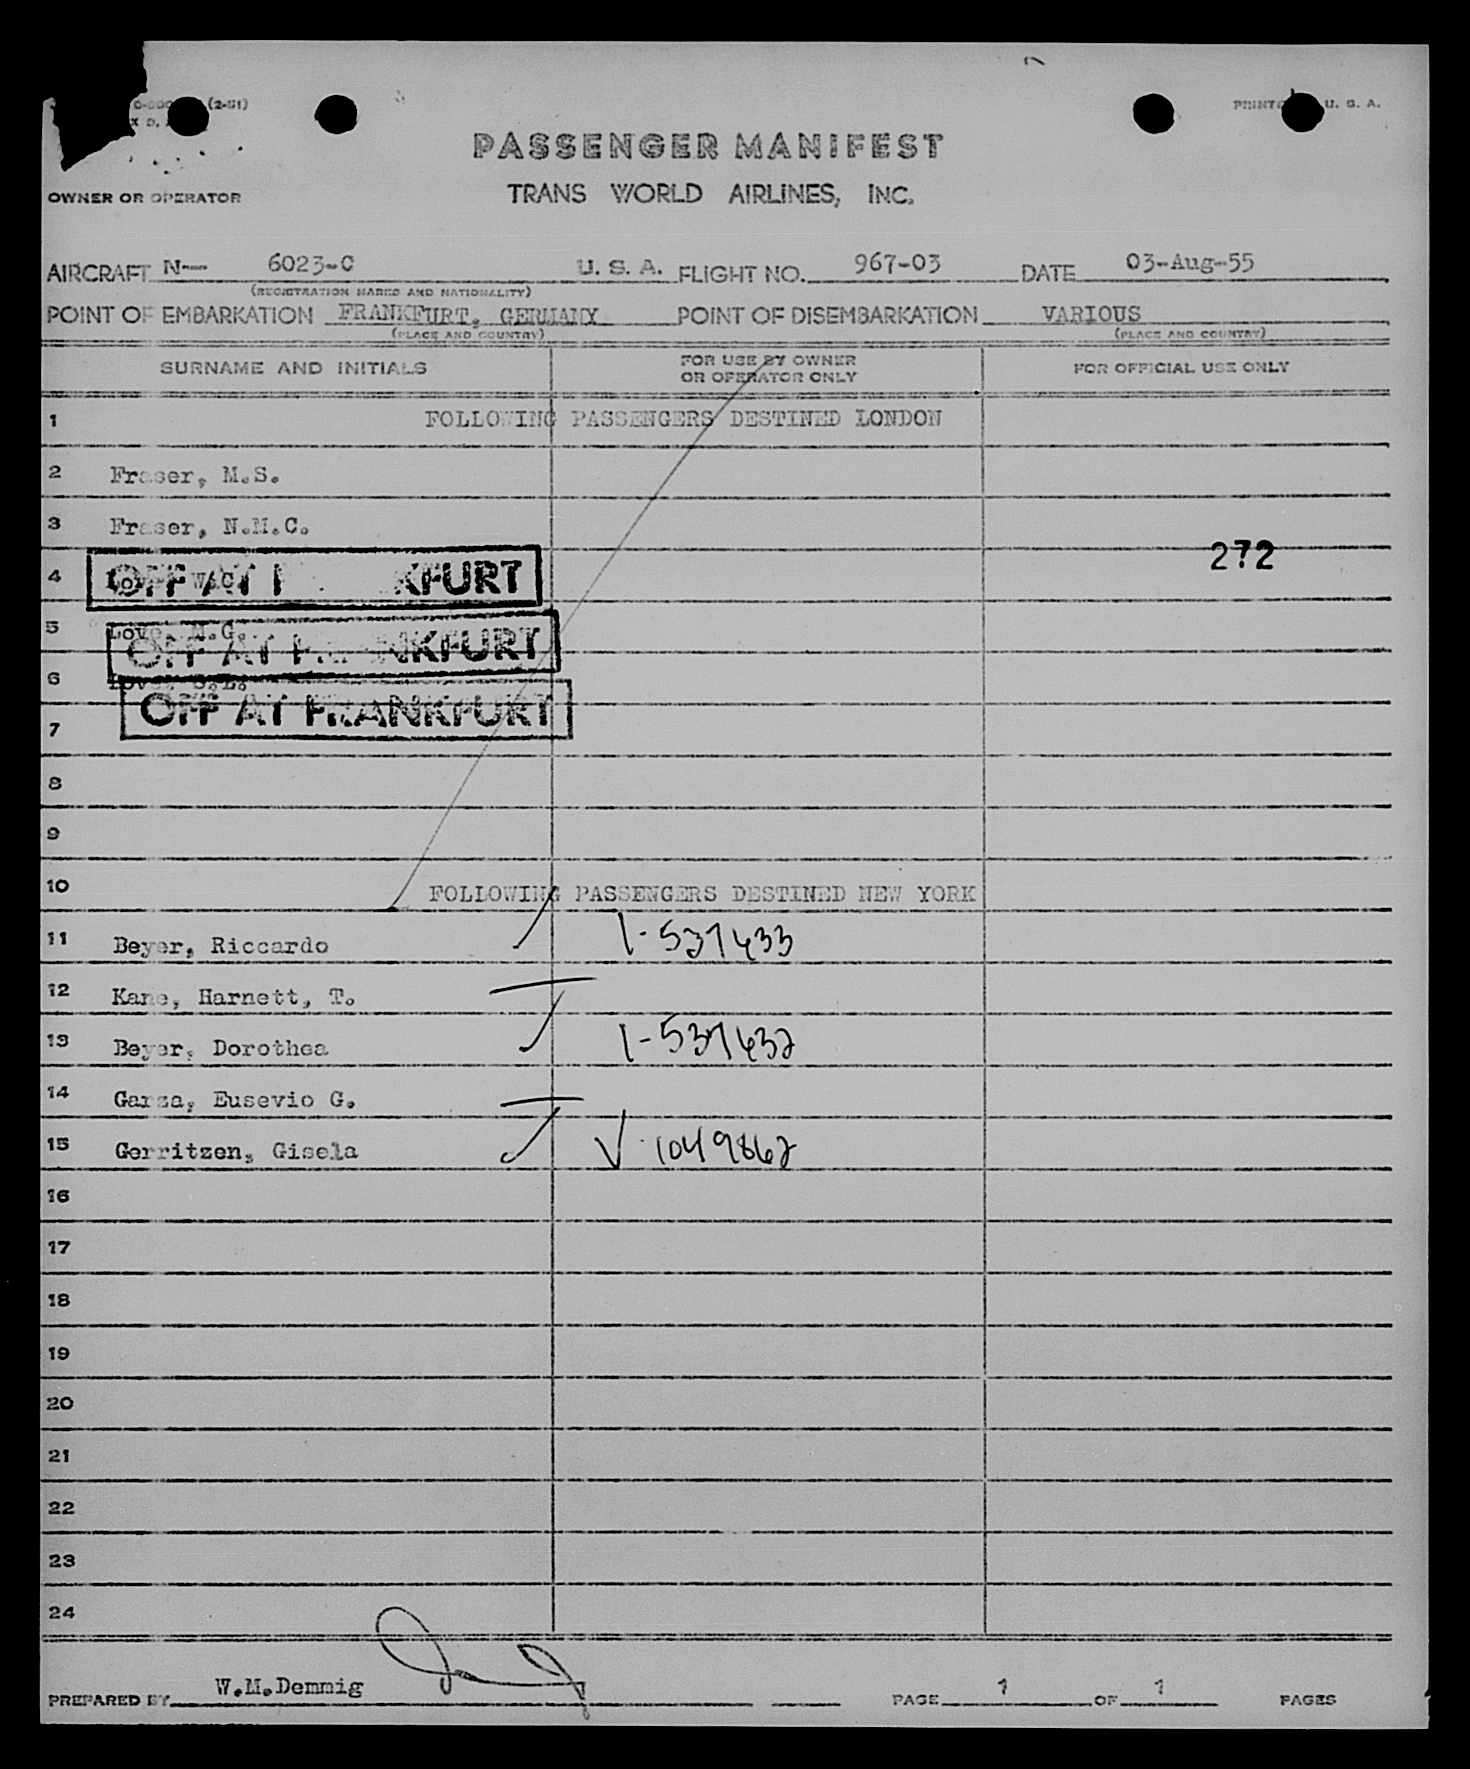 (2-51)
PRINTED U. S. A.
PASSENGER MANIFEST
OWNER OR OPERATOR
TRANS WORLD AIRLINES, INC.
AIRCRAFT N— 6023-C U. S. A. FLIGHT NO. 967-03 DATE 03-Aug-55
(REGISTRATION MARKS AND NATIONALITY)
POINT OF EMBARKATION FRANKFURT, GERMANY POINT OF DISEMBARKATION VARIOUS
(PLACE AND COUNTRY) (PLACE AND COUNTRY)
SURNAME AND INITIALS FOR USE BY OWNER OR OPERATOR ONLY FOR OFFICIAL USE ONLY
1 FOLLOWING PASSENGERS DESTINED LONDON
2 Fraser, M.S.
3 Fraser, N.M.C.
272
4 OFF AT FRANKFURT
5 Love, M.G.
OFF AT FRANKFURT
6 Love, S.L.
OFF AT FRANKFURT
7
8
9
10 FOLLOWING PASSENGERS DESTINED NEW YORK
11 Beyer, Riccardo 1-537433
12 Kane, Harnett, T.
13 Beyer, Dorothea 1-537432
14 Garza, Eusevio G.
15 Gerritzen, Gisela V-1049862
16
17
18
19
20
21
22
23
24
PREPARED BY W.M.Demmig PAGE 1 OF 1 PAGES